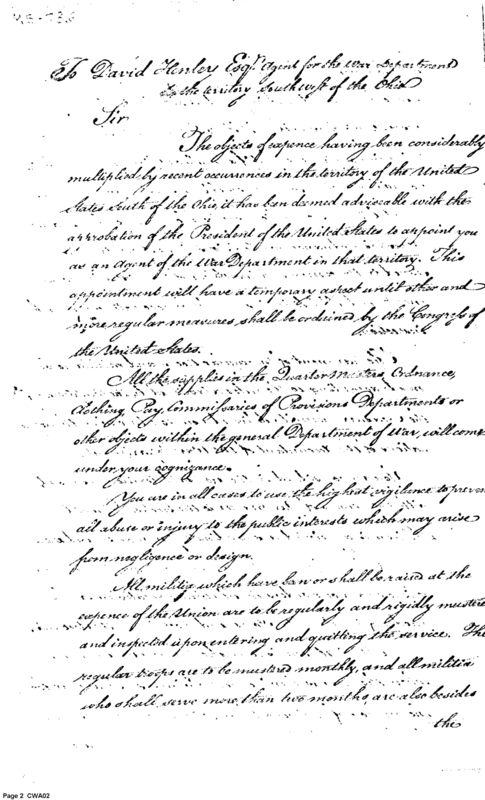 To David Henley Esqr. Agent for the War Department
in the territory South west of the Ohio
Sir
The objects of expence having been considerably
multiplied by recent occurrences in the territory of the United
States South of the Ohio, it has been deemed adviseable with the
approbation of the President of the United States to appoint you
as an Agent of the War Department in that territory. This
appointment will have a temporary aspect until other and
more regular measures, shall be ordained by the Congress of
the United States.
All the supplies in the Quarter Masters, Ordnance,
Clothing, Pay, Commissaries of Provisions Departments or
other objects within the general Department of War, will come
under your cognizance.
You are in all cases to use the highest vigilance to preven
all abuse or injury to the public interests which may arise
from negligence or design.
All militia which have been or shall be raised at the
expence of the Union are to be regularly and rigidly mustere
and inspected upon entering and quitting the service. The
regular troops are to be mustered monthly, and all militia
who shall serve more than two months, are also besides
the
Page 2 CWA02